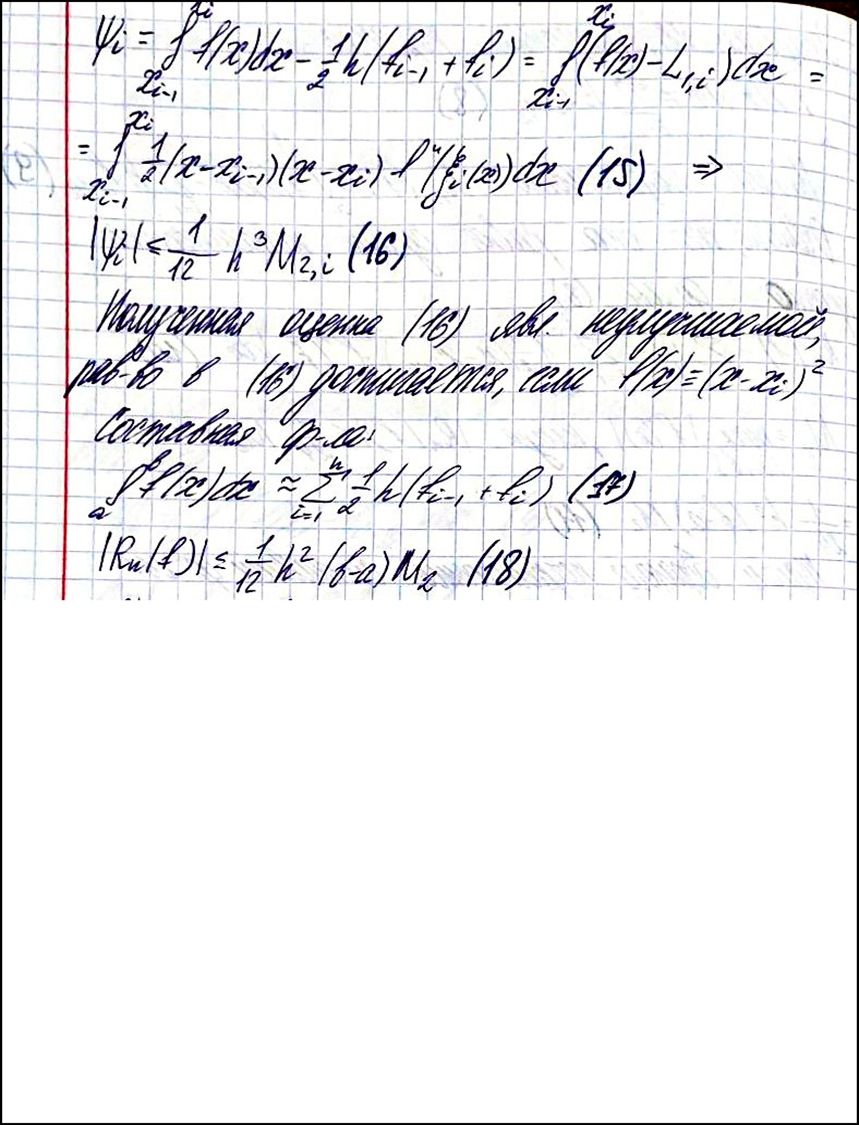 ψᵢ = ∫_{xᵢ₋₁}^{xᵢ} f(x)dx - 1/2 h(fᵢ₋₁ + fᵢ) = ∫_{xᵢ₋₁}^{xᵢ} (f(x) - L₁,ᵢ)dx =
= ∫_{xᵢ₋₁}^{xᵢ} 1/2 (x-xᵢ₋₁)(x-xᵢ) f''(ξᵢ(x))dx (15) ⇒
|ψᵢ| ≤ 1/12 h³M₂,ᵢ (16)
Полученная оценка (16) явл. неулучшаемой,
рав-во в (16) достигается, если f(x)=(x-xᵢ)²
Составная ф-ла:
∫_a^b f(x)dx ≈ ∑_{i=1}^{n} 1/2 h(fᵢ₋₁ + fᵢ) (17)
|Rₙ(f)| ≤ 1/12 h² (b-a)M₂ (18)